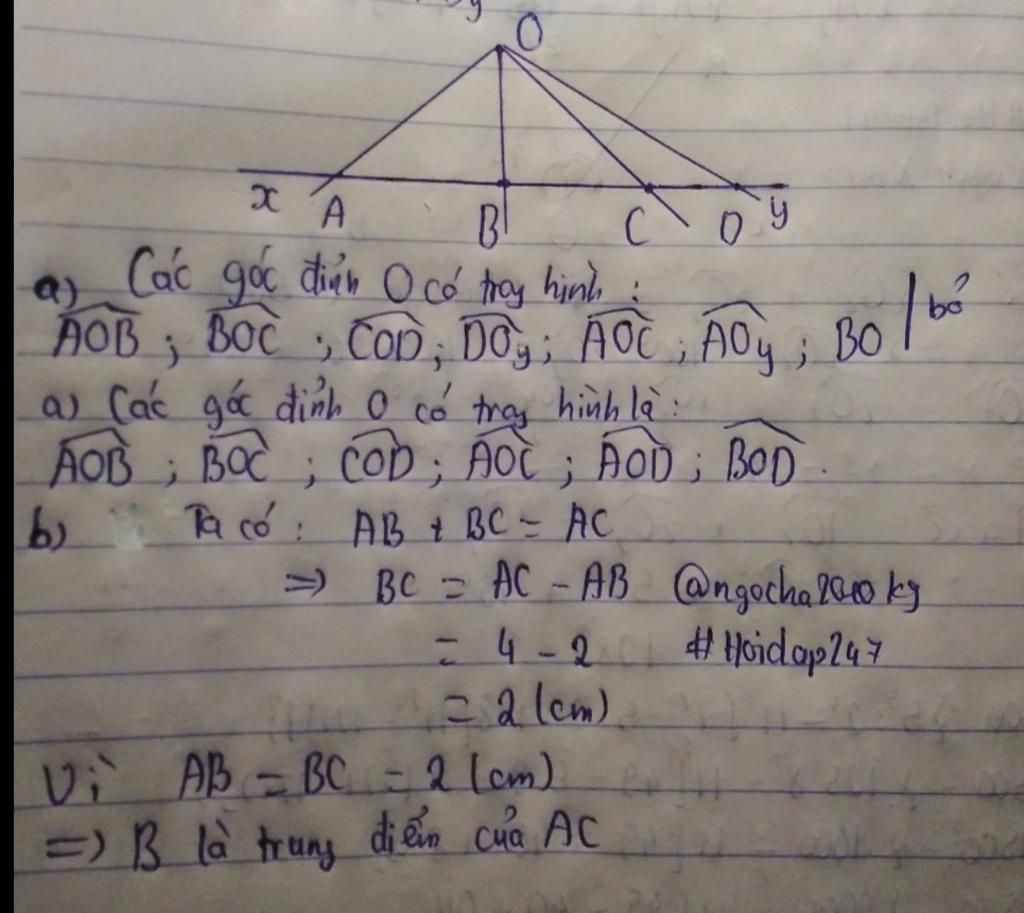 O
x A B C D y
a) Các góc đỉnh O có trong hình :
AOB ; BOC ; COD ; DOy ; AOC ; AOy ; BO | bỏ
a) Các góc đỉnh O có trong hình là :
AOB ; BOC ; COD ; AOC ; AOD ; BOD .
b) Ta có : AB + BC = AC
=> BC = AC - AB @ngocha2010kg
= 4 - 2 #Hoidap247
= 2 (cm)
Vì AB = BC = 2 (cm)
=> B là trung điểm của AC